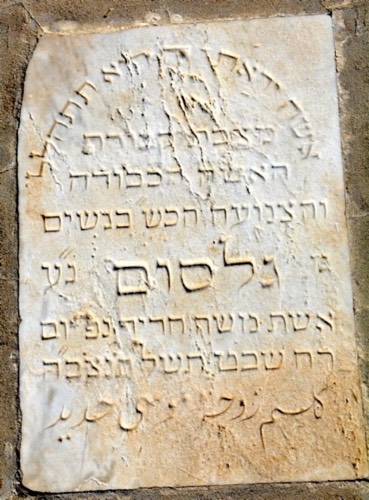 אשה יראת ה' היא תתהלל
מצבת קבורת
האשה הכבודה
והצנועה הכש' בנשים
מ' גלסום נ"ע
אשת משה חדיד נפ' יום
רח שבט תשל תנצבה
زوجة موسى حديد